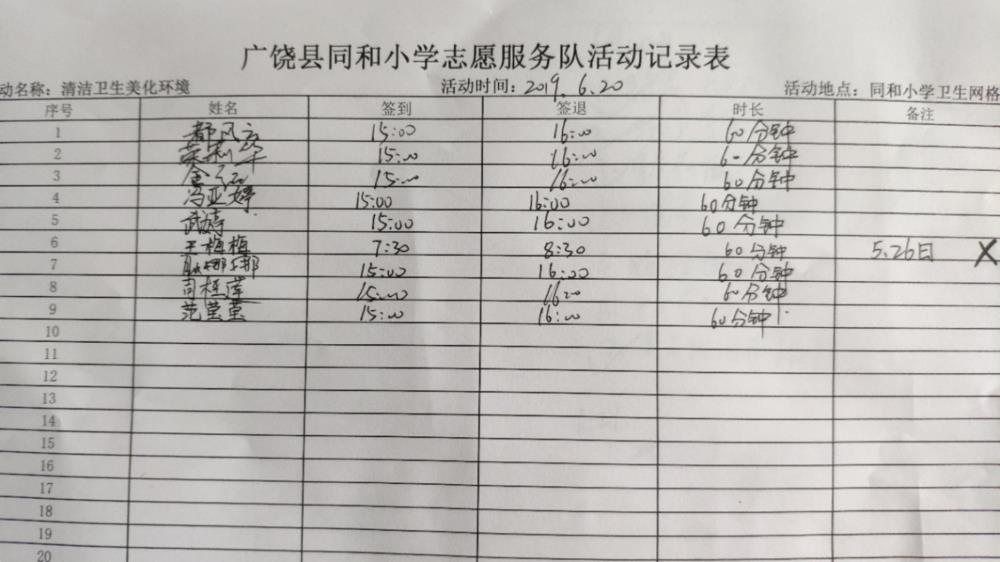 广饶县同和小学志愿服务队活动记录表
动名称：清洁卫生美化环境 活动时间：2019.6.20 活动地点：同和小学卫生网格
序号 姓名 签到 签退 时长 备注
1 15:00 16:00 60分钟
2 15:00 16:00 60分钟
3 15:00 16:00 60分钟
4 冯亚婷 15:00 16:00 60分钟
5 武涛 15:00 16:00 60分钟
6 王梅梅 7:30 8:30 60分钟 5.26日 X
7 耿娜娜 15:00 16:00 60分钟
8 司桂莲 15:00 16:00 60分钟
9 范莹莹 15:00 16:00 60分钟
10
11
12
13
14
15
16
17
18
19
20